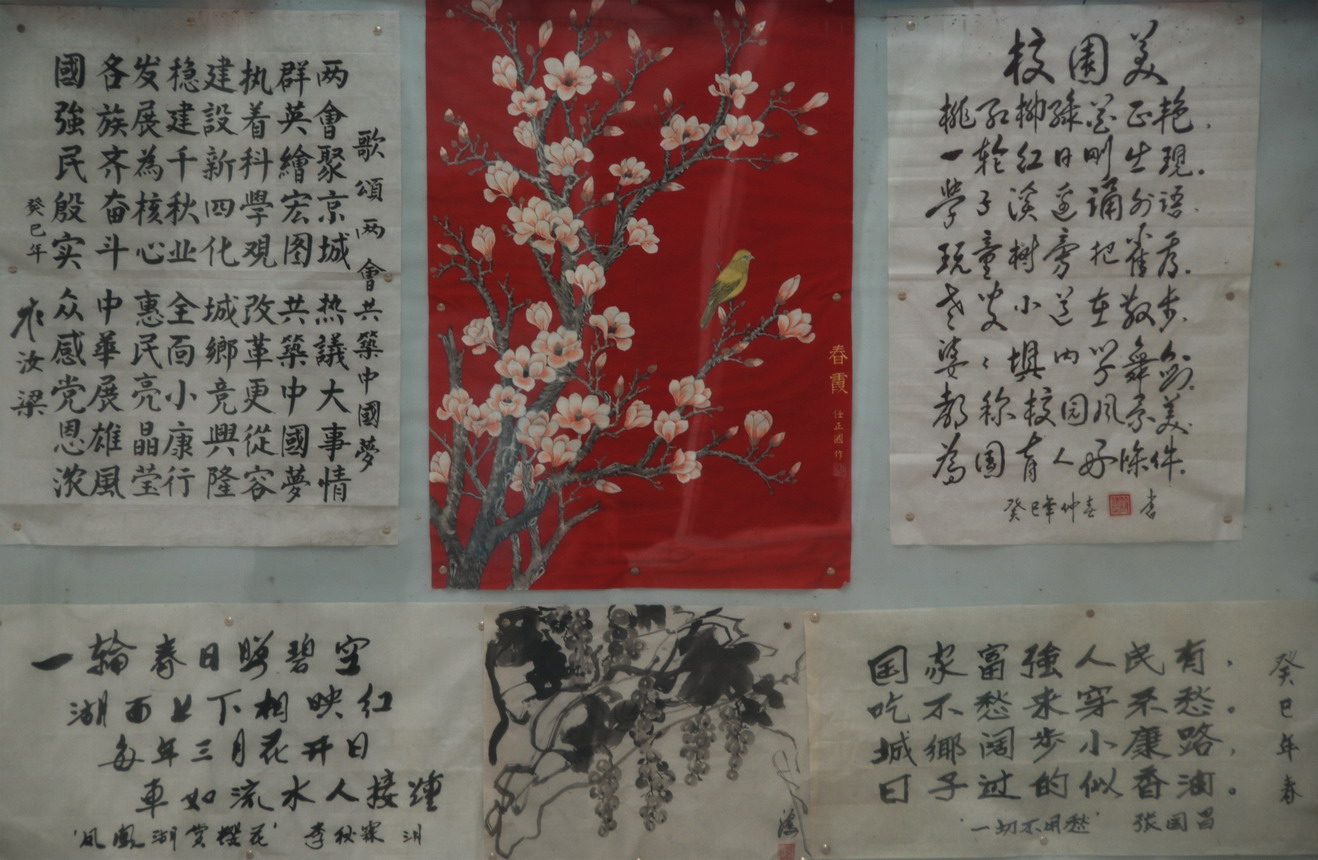 歌頌两會共築中國夢
两會聚京城 热議大事情
群英繪宏图 共築中國夢
执着科學观 改革更從容
建設新四化 城鄉竞興隆
稳建千秋业 全面小康行
发展為核心 惠民亮晶莹
各族齐奋斗 中華展雄風
國強民殷实 众感党恩浓
癸巳年
汝梁
春霞
任正國作
校園美
桃红柳绿花正艳.
一轮红日刚出现.
学子溪边诵外语.
玩童树旁把雀看.
老叟小道在散步.
婆々埧内学舞剑.
都称校园风景美.
為園育人好條件.
癸巳年仲春 書
一轮春日照碧空
湖面上下相映红
每年三月花开日
車如流水人接踵
'凤凰湖赏樱花' 李秋霖
国家富強人民有,
吃不愁来穿不愁。
城鄉阔步小康路,
日子过的似香油。
'一切不用愁' 张国昌
癸巳年春